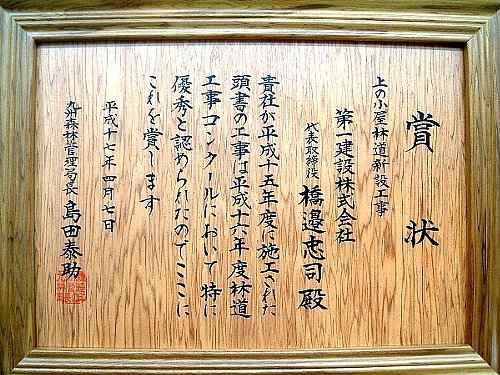 賞状
上の小屋林道新設工事
第一建設株式会社
代表取締役 橋邉忠司殿
貴社が平成十五年度に施工された
頭書の工事は平成十六年度林道
工事コンクールにおいて特に
優秀と認められたのでここに
これを賞します
平成十七年四月七日
九州森林管理局長 島田泰助